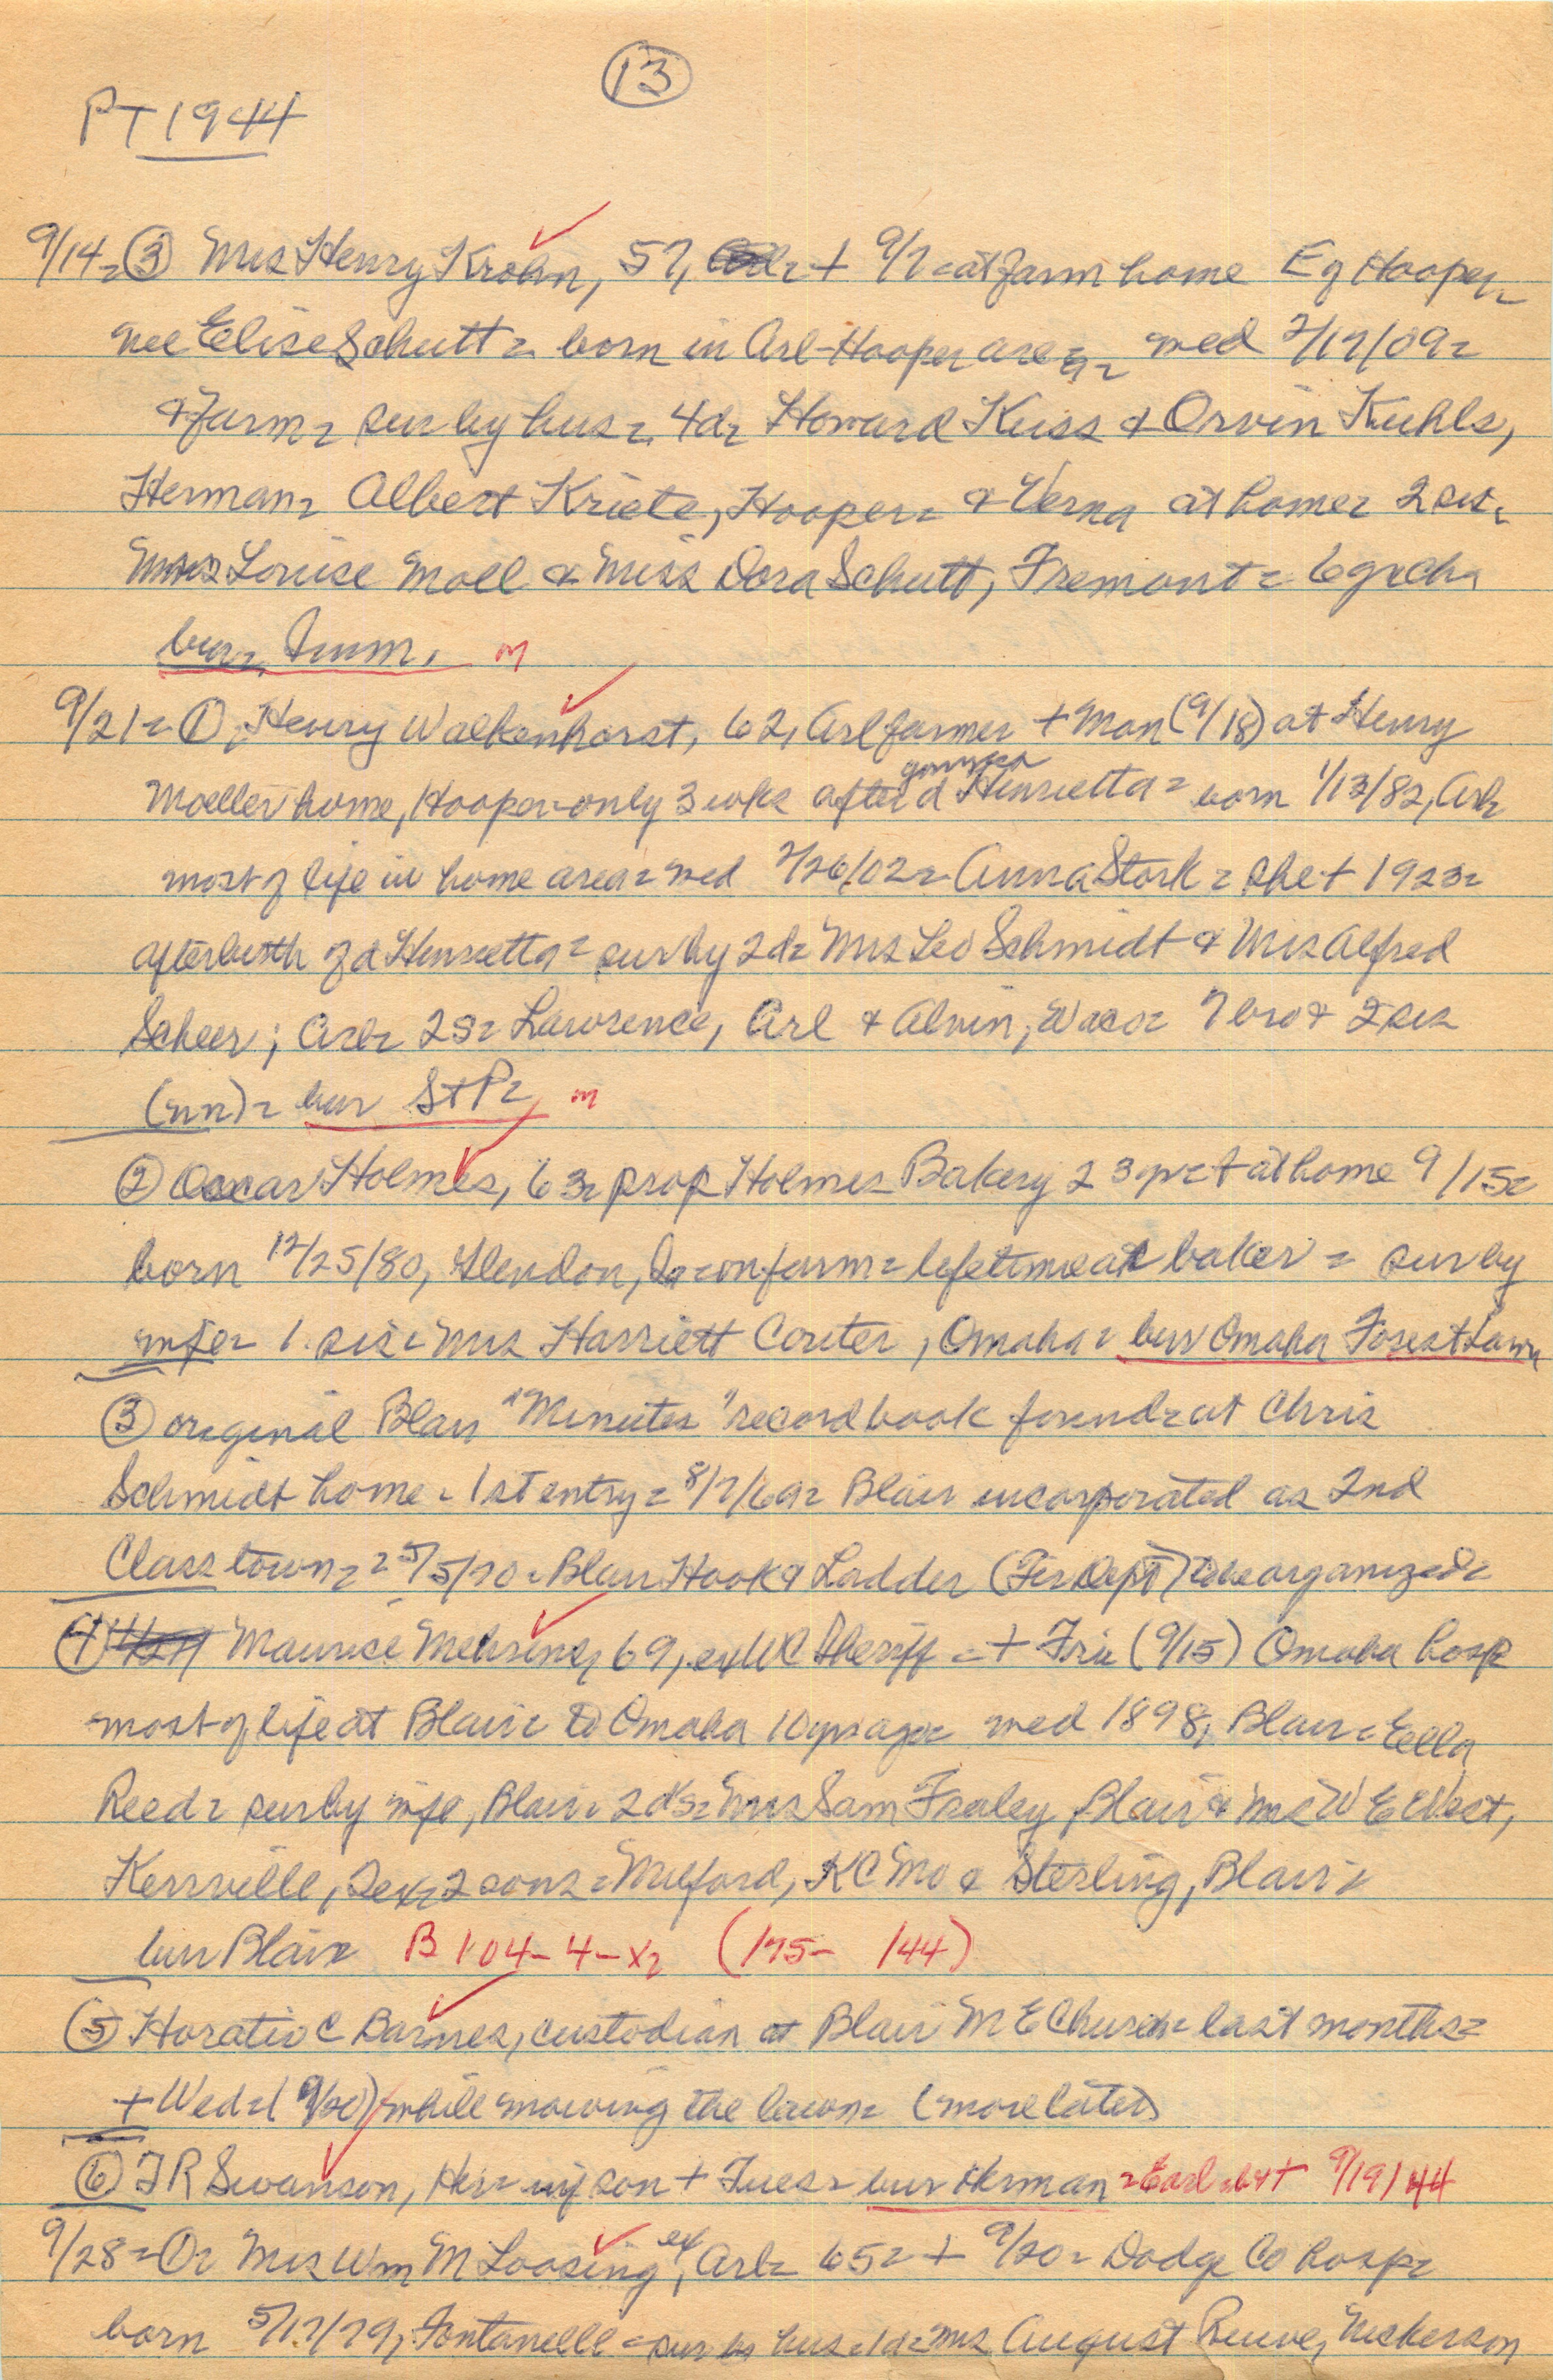 13
PT 1944
9/14 = 3 Mrs Henry Krohn, 57, + 9/7 = at farm home E of Hooper =
nee Elise Schutt = born in Arl-Hooper area = med 2/17/09 =
& farm = sur by hus = 4d = Howard Kuss & Orvin Kuhls,
Herman = Albert Kriete, Hooper = & Verna at home = 2 sis =
Louise Moll & Miss Dora Schutt, Fremont = 6 grch
bur =
9/21 = 1, Henry Walkenhorst, 62, Arl farmer + Mon (9/18) at Henry
Moeller home, Hooper - only 3 wks after d Henrietta = born 1/13/82, Arl =
most of life in home area = med 2/26/02 = Anna Stork = she + 1923 =
after birth of d Henrietta = sur by 2d = Mrs Leo Schmidt & Mrs Alfred
Scheer; Arl = 2S = Lawrence, Arl & Alvin, Waco = 7 bro & 2 sis
(nn) = bur St P = m
2 Oscar Holmes, 63 = prop Holmes Bakery 23 yr = + at home 9/15 =
born 12/25/80, Glendon, Ia = on farm = lifetime as baker = sur by
wife = 1 sis = Mrs Harriett Couter, Omaha = bur Omaha Forest Lawn
3 original Blair "Minutes" record book found = at Chris
Schmidt home = 1st entry = 8/7/69 = Blair incorporated as 2nd
Class town = = 5/5/70 = Blair Hook & Ladder (Fir Dept) organized =
4 Maurice Mehrens, 69, ex WC Sheriff = + Fri (9/15) Omaha hosp
most of life at Blair = to Omaha 10 yrs ago = med 1898, Blair = Eella
Reed = sur by wife, Blair = 2 d's = Mrs Sam Fraley, Blair & Mrs W E West,
Kerrville, Tex = 2 sons = Milford, KC Mo & Sterling, Blair =
bur Blair B 104-4-X2 (175- 144)
5 Horatio C Barnes, custodian at Blair M E Church = last months =
+ Wed = (9/20) while mowing the lawn = (more later)
6 F R Swanson, Her = inf son + Tues = bur Herman = Earl = b & + 9/19/44
9/28 = 1 = Mrs Wm M Loosing, ex Arl = 65 = + 9/20 = Dodge Co hosp =
born 5/17/79, Fontanelle = sur by hus = 1d = Mrs August Ruwe, Nickerson